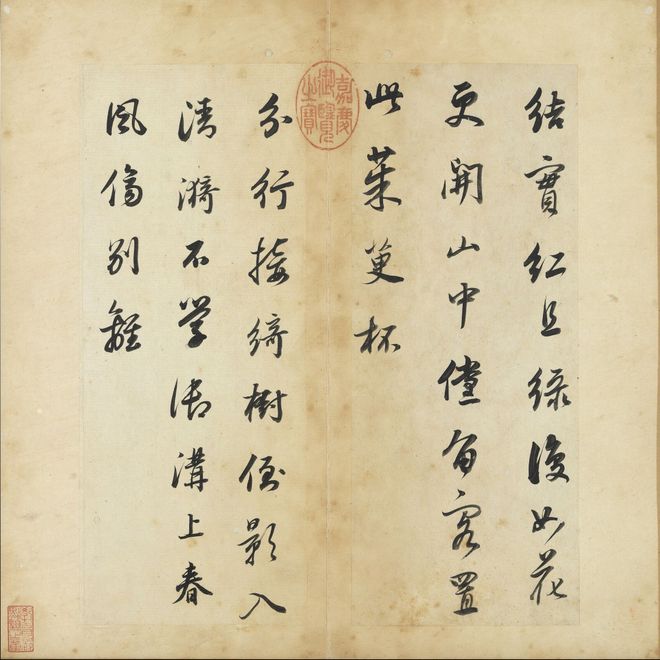 結實紅且綠復如花
更開山中儻留客置
此茱萸杯
嘉慶御覽之寶
分行接綺樹倒影入
清漪不學御溝上春
風傷別離